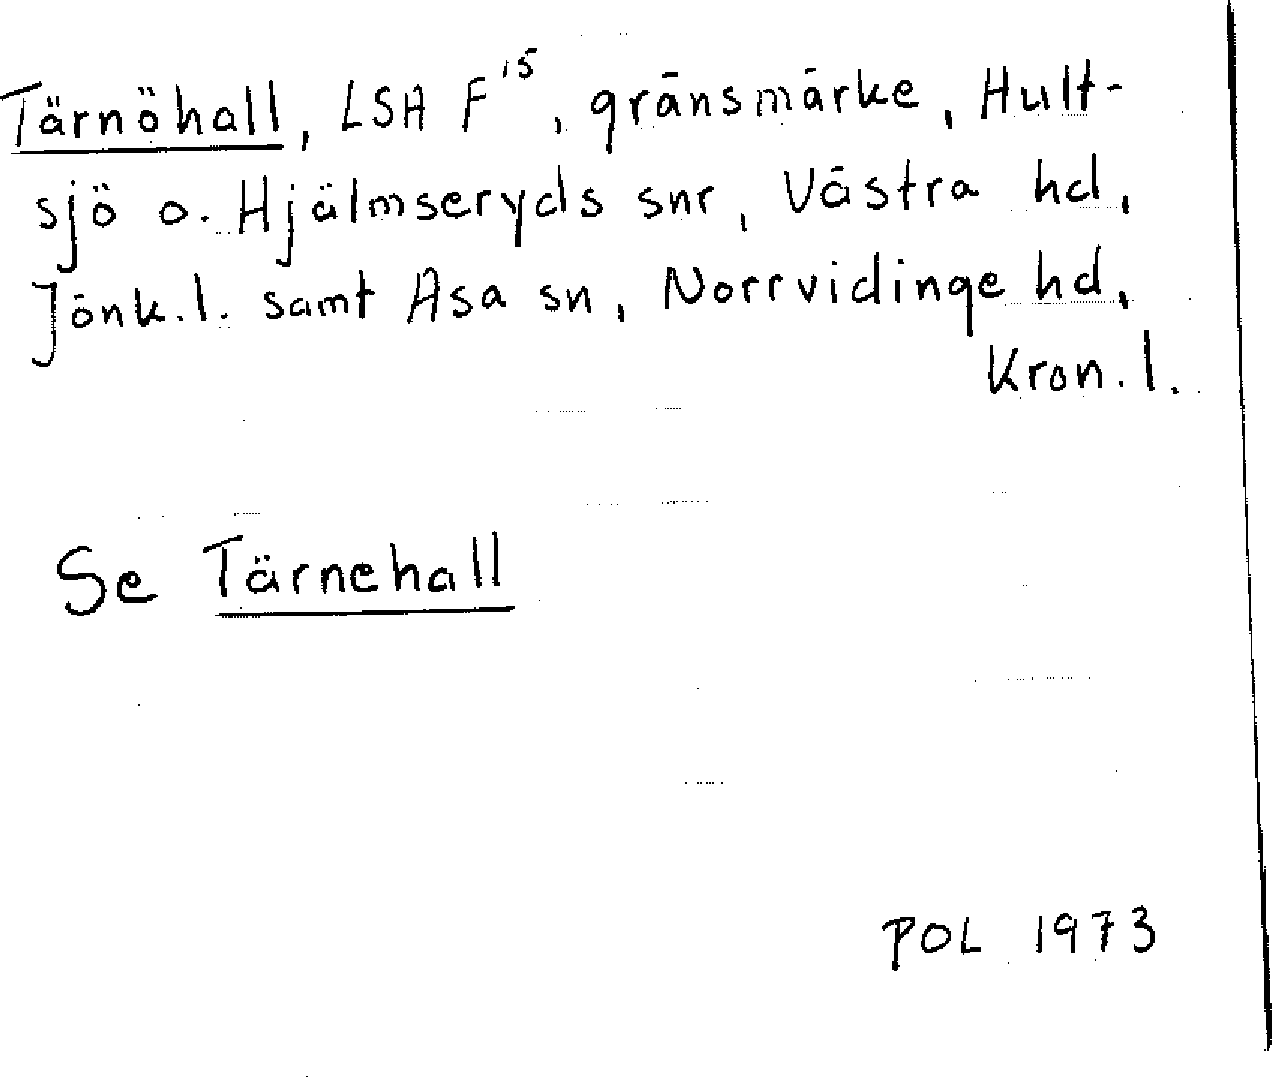 Tärnöhall, LSA F¹⁵, gränsmärke, Hult-
sjö o. Hjälmseryds snr, Västra hd,
Jönk.l. samt Asa sn, Norrvidinge hd,
Kron.l.
Se Tärnehall
POL 1973